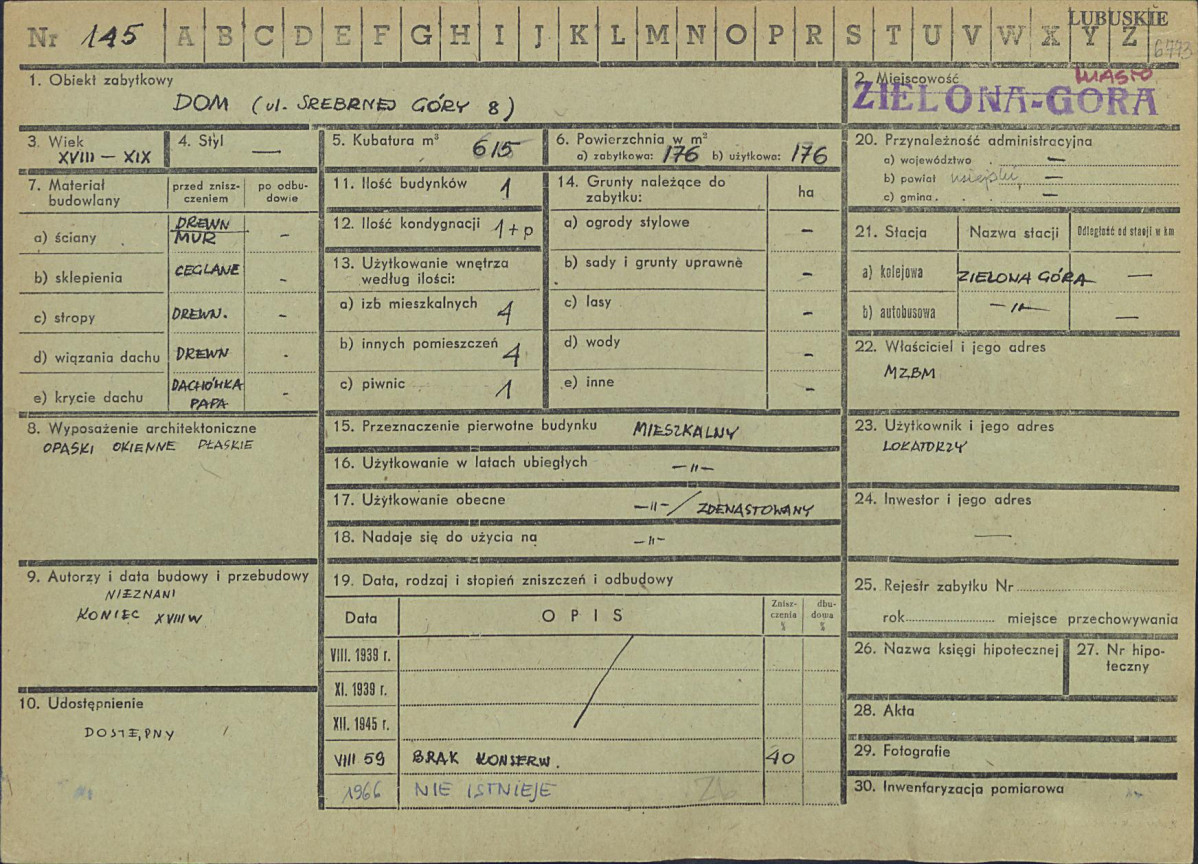 Nr 145 A B C D E F G H I J K L M N O P R S T U V W X Y Z
LUBUSKIE
6773
1. Obiekt zabytkowy
DOM (ul. SREBRNEJ GÓRY 8)
2. Miejscowość
MIASTO
ZIELONA-GÓRA
3. Wiek
XVIII — XIX
4. Styl
—
5. Kubatura m³ 615
6. Powierzchnia w m²
a) zabytkowa: 176 b) użytkowa: 176
7. Materiał budowlany
przed zniszczeniem
po odbudowie
a) ściany DREWN MUR -
b) sklepienia CEGLANE -
c) stropy DREWN. -
d) wiązania dachu DREWN -
e) krycie dachu DACHÓWKA PAPA -
8. Wyposażenie architektoniczne
OPASKI OKIENNE PŁASKIE
9. Autorzy i data budowy i przebudowy
NIEZNANI
KONIEC XVIII W
10. Udostępnienie
DOSTĘPNY
11. Ilość budynków 1
12. Ilość kondygnacji 1+p
13. Użytkowanie wnętrza
według ilości:
a) izb mieszkalnych 4
b) innych pomieszczeń 4
c) piwnic 1
14. Grunty należące do
zabytku:
ha
a) ogrody stylowe -
b) sady i grunty uprawne -
c) lasy -
d) wody -
e) inne -
15. Przeznaczenie pierwotne budynku MIESZKALNY
16. Użytkowanie w latach ubiegłych —"—
17. Użytkowanie obecne —"— / ZDEWASTOWANY
18. Nadaje się do użycia na —"—
19. Data, rodzaj i stopień zniszczeń i odbudowy
Data
O P I S
Zniszczenia %
dbudowa %
VIII. 1939 r.
XI. 1939 r.
XII. 1945 r.
VIII 59 BRAK KONSERW. 40
1966 NIE ISTNIEJE
20. Przynależność administracyjna
a) województwo . —
b) powiat miejski —
c) gmina . —
21. Stacja
Nazwa stacji
Odległość od stacji w km
a) kolejowa ZIELONA GÓRA —
b) autobusowa —"— —
22. Właściciel i jego adres
MZBM
23. Użytkownik i jego adres
LOKATORZY
24. Inwestor i jego adres
—
25. Rejestr zabytku Nr
rok miejsce przechowywania
26. Nazwa księgi hipotecznej
27. Nr hipoteczny
28. Akta
29. Fotografie
30. Inwentaryzacja pomiarowa